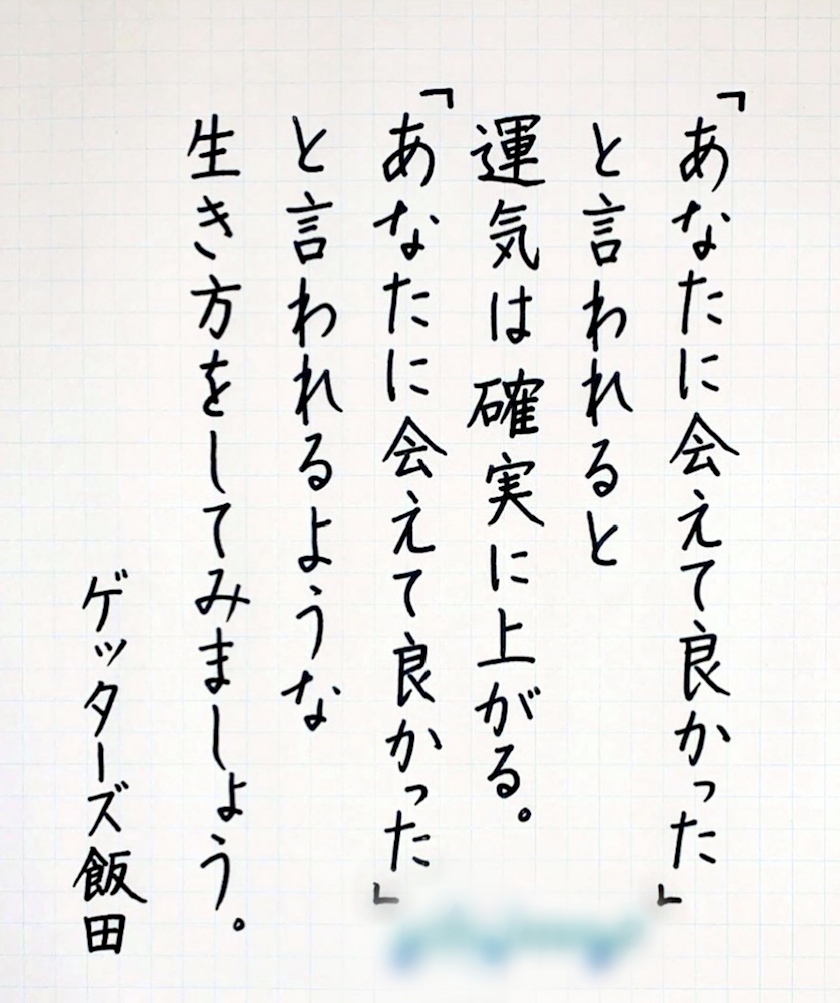 「あなたに会えて良かった」
と言われると
運気は確実に上がる。
「あなたに会えて良かった」
と言われるような
生き方をしてみましょう。
ゲッターズ飯田